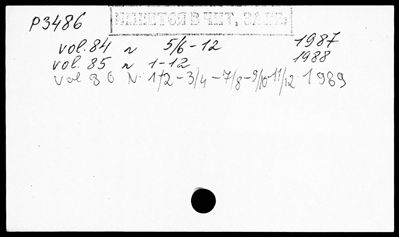 P3486
ИМЕЕТСЯ В ЧИТ. ЗАЛЕ
vol. 84 N 5/6-12 1987
vol. 85 N 1-12 1988
vol 86 N. 1/2-3/4-7/8-9/10-11/12 1989